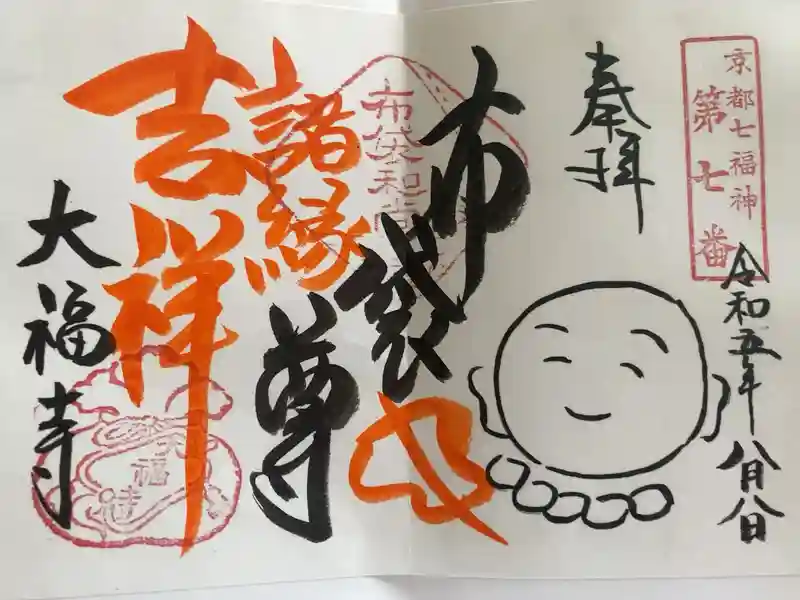 京都七福神
第七番
令和五年八月八日
奉拝
布袋尊
布袋和尚
諸縁
吉祥
大福寺